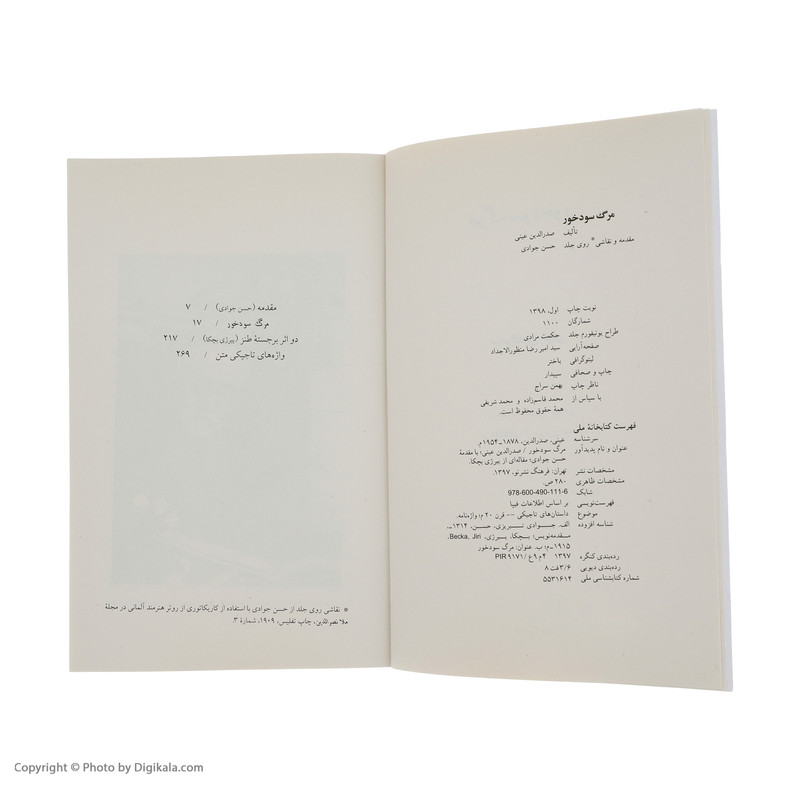 مرگ سودخور
تألیف صدرالدین عینی
مقدمه و نقاشی* روی جلد حسن جوادی
نوبت چاپ اول، ۱۳۹۸
شمارگان ۱۱۰۰
طراح یونیفورم جلد حکمت مرادی
صفحه‌آرایی سید امیر رضا منظورالاجداد
لیتوگرافی باختر
چاپ و صحافی سپیدار
ناظر چاپ بهمن سراج
با سپاس از محمد قاسم‌زاده و محمد شریفی
همهٔ حقوق محفوظ است.
فهرست کتابخانهٔ ملی
سرشناسه عینی، صدرالدین، ۱۸۷۸-۱۹۵۴م.
عنوان و نام پدیدآور مرگ سودخور / صدرالدین عینی؛ با مقدمهٔ
حسن جوادی؛ مقاله‌ای از ییرژی بچکا.
مشخصات نشر تهران: فرهنگ نشرنو، ۱۳۹۷.
مشخصات ظاهری ۲۸۰ ص.
شابک 978-600-490-111-6
فهرست‌نویسی بر اساس اطلاعات فیپا
موضوع داستان‌های تاجیکی -- قرن ۲۰م؛ واژه‌نامه.
شناسه افزوده الف. جوادی تبریزی، حسن، ۱۳۱۴ـ،
مقدمه‌نویس؛ بچکا، ییرژی، Becka, Jiri،
۱۹۱۵ـم؛ ب. عنوان: مرگ سودخور
رده‌بندی کنگره ۱۳۹۷ ۴م۹ع/ PIR ۹۱۷۱
رده‌بندی دیویی ۸فت۳/۶
شماره کتابشناسی ملی ۵۵۳۱۶۱۴
مقدمه (حسن جوادی) / ۷
مرگ سودخور / ۱۷
دو اثر برجستهٔ طنز (ییرژی بچکا) / ۲۱۷
واژه‌های تاجیکی متن / ۲۶۹
* نقاشی روی جلد از حسن جوادی با استفاده از کاریکاتوری از روتر هنرمند آلمانی در مجلهٔ
ملا نصرالدین، چاپ تفلیس، ۱۹۰۹، شمارهٔ ۳.
Copyright © Photo by Digikala.com